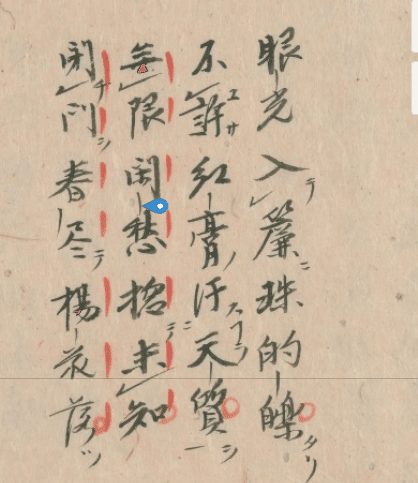 眼光入簾珠的皪
不許紅膏汙天質
無限閑愁捴未知
閉門春尽楊花落